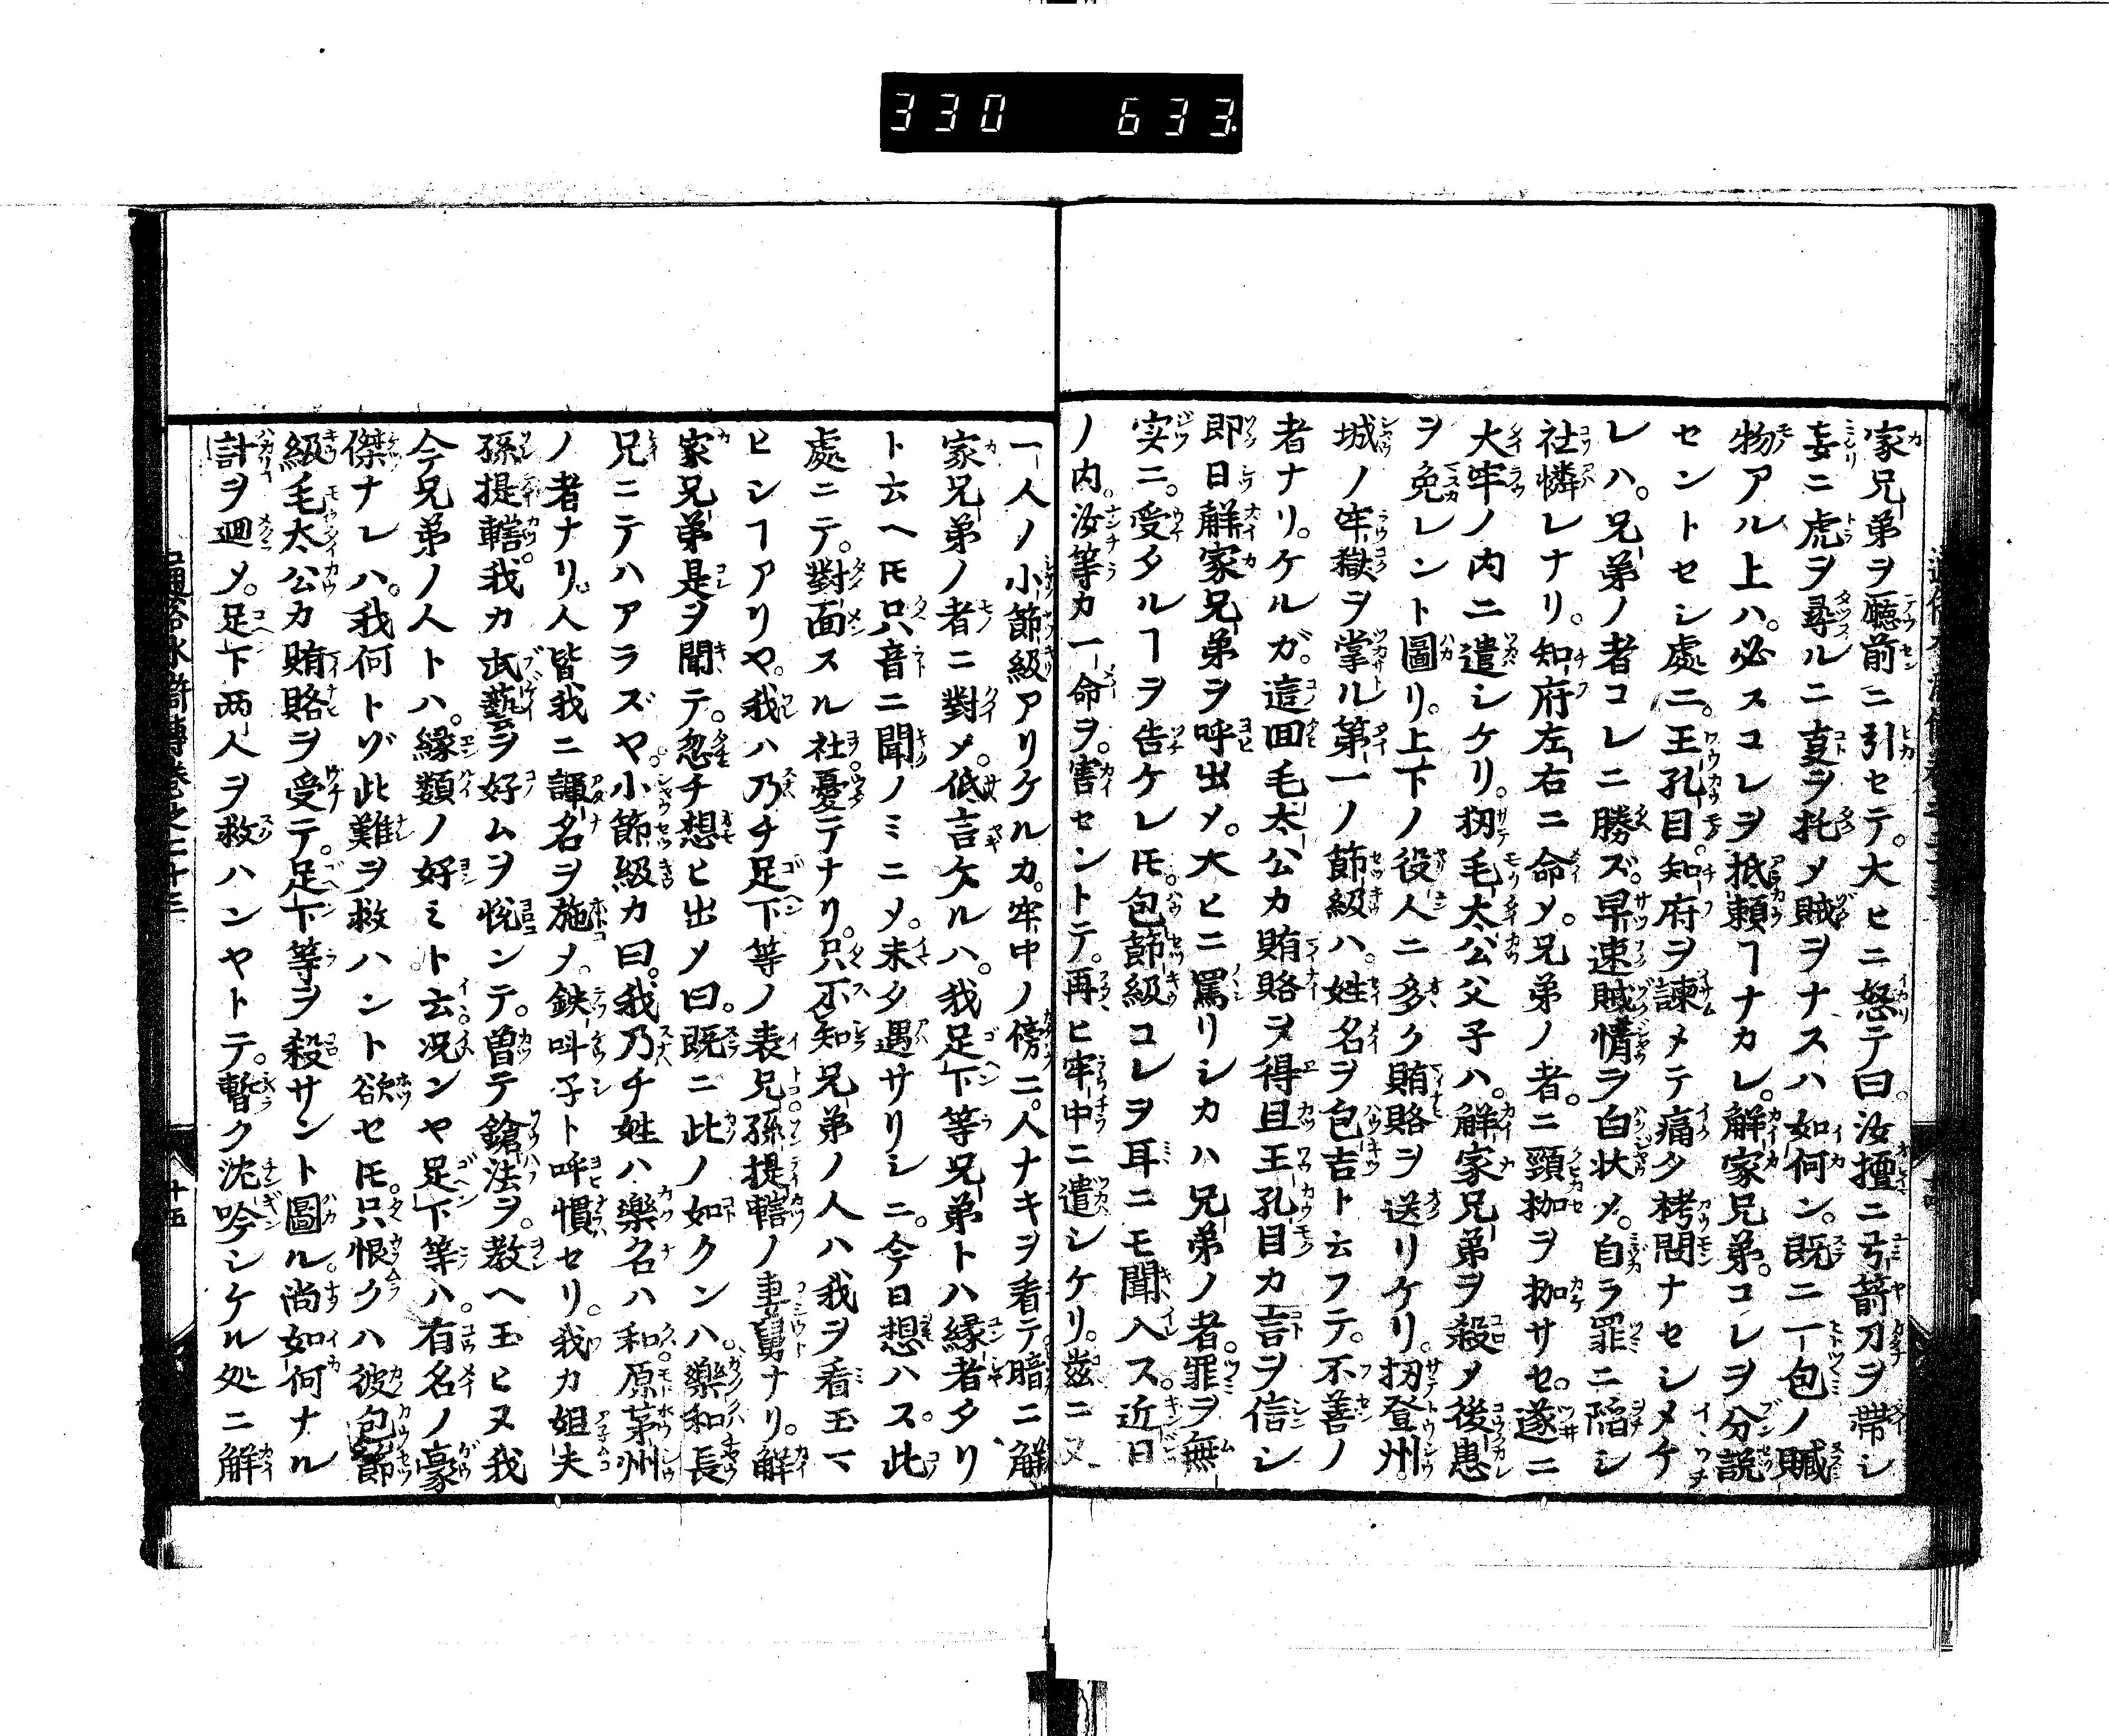 330 633.
家兄弟ヲ廳前ニ引セテ。大ヒニ怒テ曰。汝擅ニ弓箭刀ヲ帶シ
妄ニ虎ヲ尋ルニ亘ヲ托メ賊ヲナスハ如何ン。既ニ一包ノ贓
物アル上ハ。必スコレヲ抵頼ヿナカレ。解家兄弟。コレヲ分説
セントセシ處ニ。王孔目。知府ヲ諫メテ痛タ拷問ナセシメケ
レハ。兄弟ノ者コレニ勝ズ。早速賊情ヲ白状メ。自ラ罪ニ陷シ
社憐レナリ。知府左右ニ命メ。兄弟ノ者。ニ頸枷ヲ枷サセ。遂ニ
大牢ノ内ニ遣シケリ。扨毛太公父子ハ。解家兄弟ヲ殺メ後患
ヲ免レント圖リ。上下ノ役人ニ多ク賄賂ヲ送リケリ。扨登州
城ノ牢獄ヲ掌ル第一ノ節級ハ。姓名ヲ包吉ト云フテ。不善ノ
者ナリ。ケルガ。這囬毛太公カ賄賂ヲ得且王孔目カ言ヲ信シ
即日解家兄弟ヲ呼出メ。大ヒニ罵リシカハ兄弟ノ者。罪ヲ無
実ニ。受タルヿヲ告ケレ𪜈。包節級コレヲ耳ニモ聞入ス。近日
ノ内。汝等カ一命ヲ。害セントテ。再ヒ牢中ニ遣シケリ。茲ニ又
一人ノ小節級アリケルカ。牢中ノ傍ニ。人ナキヲ看テ暗ニ解
家兄弟ノ者ニ對メ。低言ケルハ。我足下等兄弟トハ縁者タリ
ト云ヘ𪜈只音ニ聞ノミニメ。未タ遇サリシニ。今日想ハス。此
處ニテ。對面スル社。憂テナリ。只不知兄弟ノ人ハ我ヲ看玉マ
ヒシヿアリヤ。我ハ乃チ足下等ノ表兄。孫提轄ノ妻舅ナリ。解
家兄弟是ヲ聞テ。忽チ想ヒ出メ曰。既ニ此ノ如クンハ。樂和長
兄ニテハアラズヤ。小節級カ曰。我乃チ姓ハ樂名ハ和原茅州
ノ者ナリ。人皆我ニ諢名ヲ施メ。鉄呌子ト呼慣セリ。我カ姐夫
孫提轄。我カ武藝ヲ好ムヲ悦ンテ。曽テ鎗法ヲ。教ヘ玉ヒヌ我
今兄弟ノ人トハ。縁類ノ好ミト云。况ンヤ足下等ハ。有名ノ豪
傑ナレハ。我何トゾ此難ヲ救ハント欲セ𪜈。只恨クハ彼包節
級毛太公カ賄賂ヲ受テ。足下等ヲ殺サント圖ル。尚如何ナル
計ヲ廻メ。足下両人ヲ救ハンヤトテ。暫ク沈吟シケル処ニ解
通俗水滸傳巻之二十三
十五